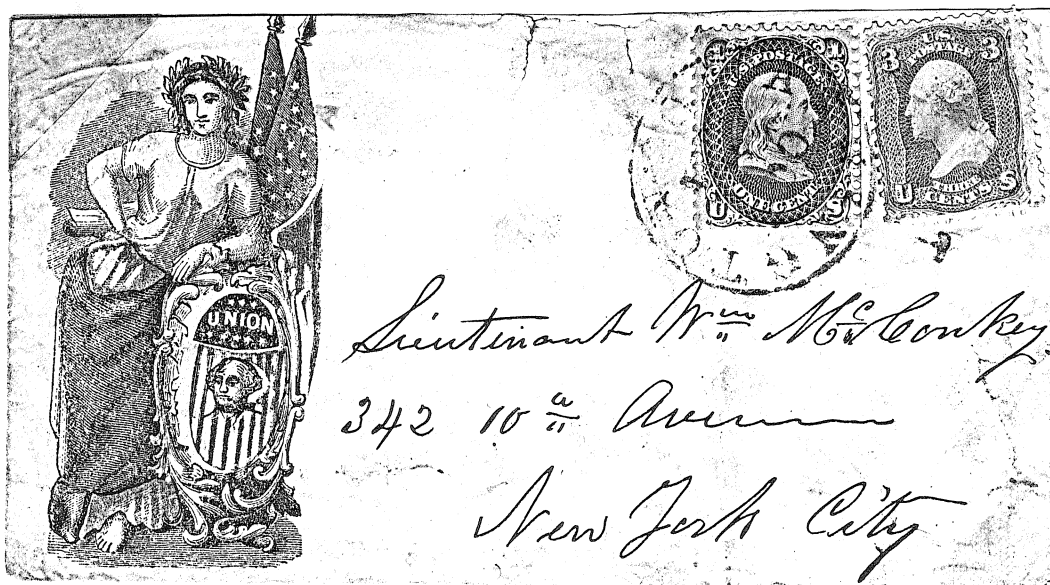 U.S. POSTAGE
ONE CENT
U S
U.S. POSTAGE
3 3
THREE
U CENTS S
UNION
Lieutenant Wm McConkey
342 10 a Avenue
New York City